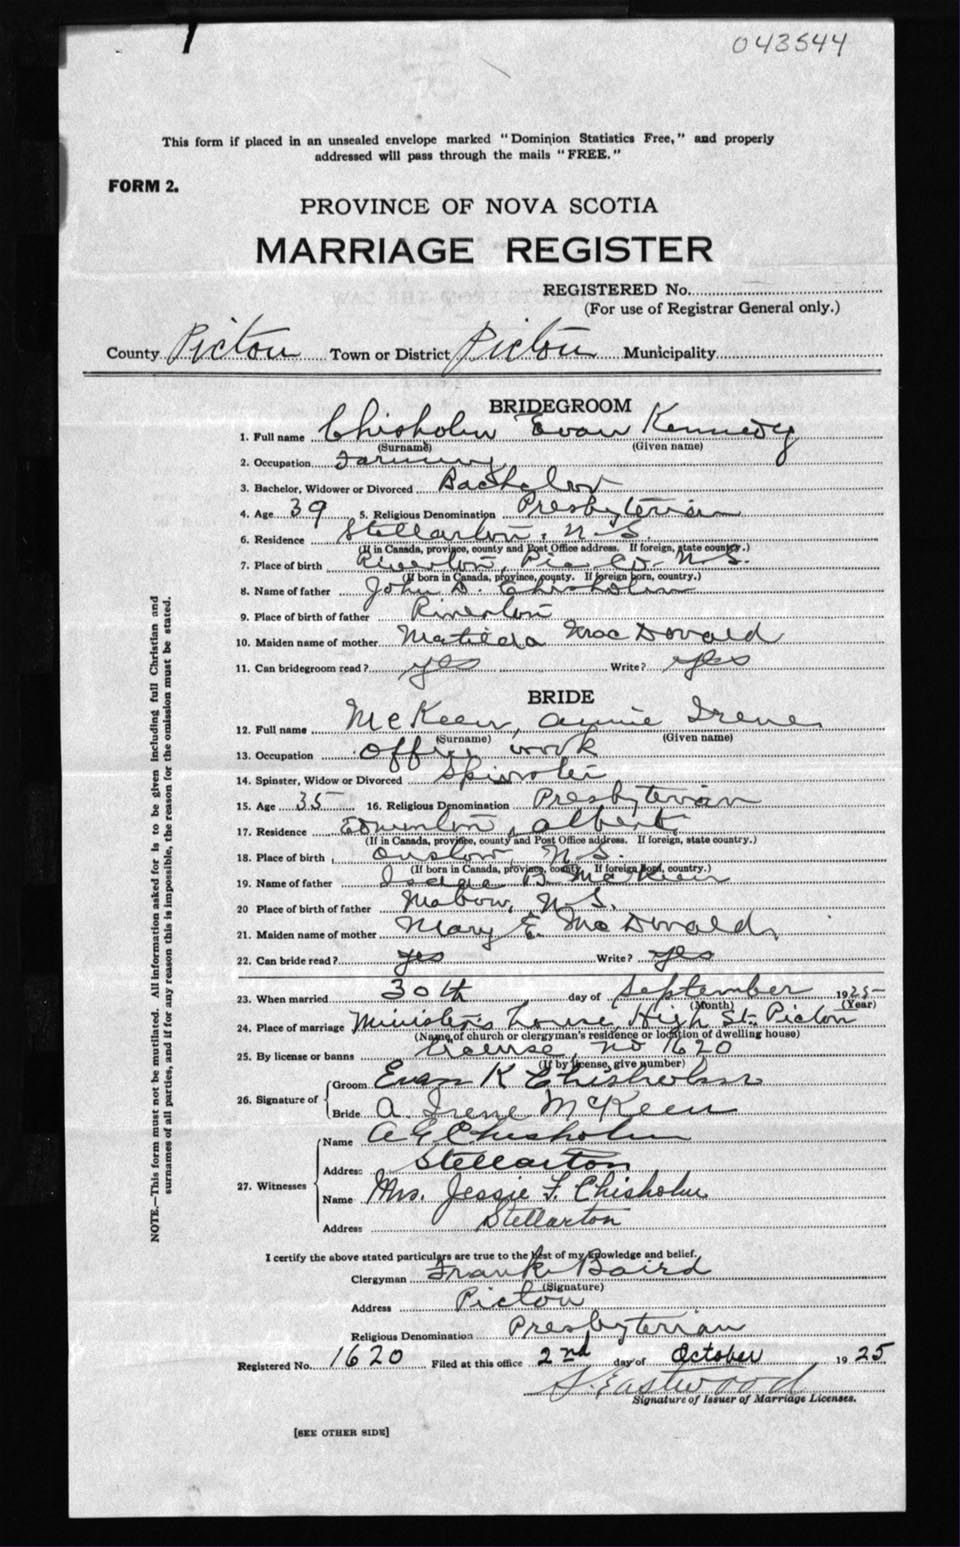 043544
This form if placed in an unsealed envelope marked "Dominion Statistics Free," and properly
addressed will pass through the mails "FREE."
FORM 2.
PROVINCE OF NOVA SCOTIA
MARRIAGE REGISTER
REGISTERED No.
(For use of Registrar General only.)
County Pictou Town or District Pictou Municipality
BRIDEGROOM
1. Full name Chisholm Evan Kennedy
(Surname) (Given name)
2. Occupation Farming
3. Bachelor, Widower or Divorced Bachelor
4. Age 39 5. Religious Denomination Presbyterian
6. Residence Stellarton, N.S.
(If in Canada, province, county and Post Office address. If foreign, state country.)
7. Place of birth Riverton, Pic Co. N.S.
(If born in Canada, province, county. If foreign born, country.)
8. Name of father John D. Chisholm
9. Place of birth of father Riverton
10. Maiden name of mother Matilda MacDonald
11. Can bridegroom read? yes Write? yes
BRIDE
12. Full name McKeen, Annie Irene
(Surname) (Given name)
13. Occupation Office work
14. Spinster, Widow or Divorced Spinster
15. Age 35 16. Religious Denomination Presbyterian
17. Residence Edmonton, Albert.
(If in Canada, province, county and Post Office address. If foreign, state country.)
18. Place of birth Onslow, N.S.
(If born in Canada, province, county. If foreign born, country.)
19. Name of father Isaac B. McKeen
20 Place of birth of father Mabou, N.S.
21. Maiden name of mother Mary E. McDonald
22. Can bride read? yes Write? yes
23. When married 30th day of September 1925
(Month) (Year)
24. Place of marriage Minister's house, High St. Pictou
(Name of church or clergyman's residence or location of dwelling house)
25. By license or banns License, no 1620
(If by license, give number)
26. Signature of Groom Evan K Chisholm
Bride A. Irene McKeen
27. Witnesses Name A G Chisholm
Address Stellarton
Name Mrs. Jessie F. Chisholm
Address Stellarton
I certify the above stated particulars are true to the best of my knowledge and belief.
Clergyman Frank Baird
(Signature)
Address Pictou
Religious Denomination Presbyterian
Registered No. 1620 Filed at this office 2nd day of October 1925
S. Eastwood
Signature of Issuer of Marriage Licenses.
[SEE OTHER SIDE]
NOTE.—This form must not be mutilated. All information asked for is to be given including full Christian and
surnames of all parties, and if for any reason this is impossible, the reason for the omission must be stated.